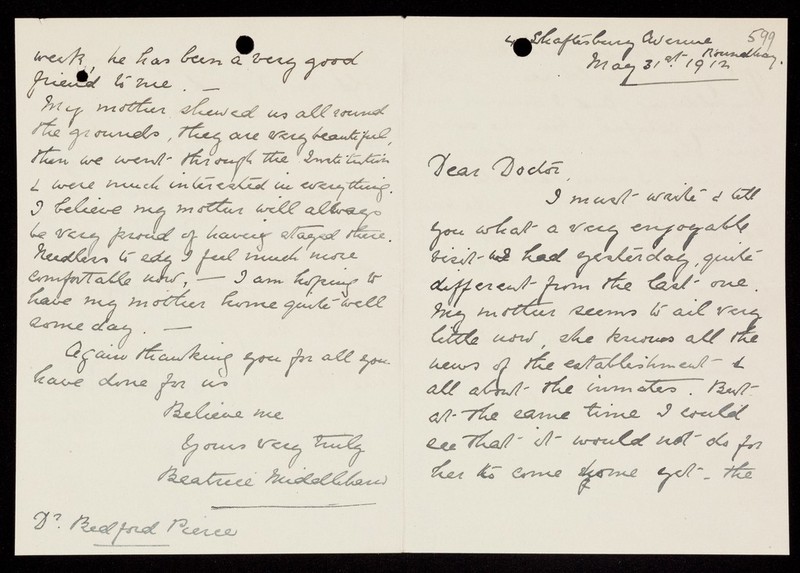 599
4 Shaftesbury Avenue
Roundhay.
May 31st. 1912
Dear Doctor,
I must write & tell
you what a very enjoyable
visit I had yesterday, quite
different from the last one.
My mother seems to ail very
little now, she knows all the
news of the establishment &
all about the inmates. But
at the same time I could
see that it would not do for
her to come home yet - the
week, he has been a very good
friend to me. —
My mother shewed us all round
the grounds, they are very beautiful,
then we went through the Institution
& were much interested in everything.
I believe my mother will always
be very proud of having stayed there.
Needless to say I feel much more
comfortable now, — I am hoping to
have my mother home quite well
some day. —
Again thanking you for all you
have done for us
Believe me
Yours very truly
Beatrice
Dr. Bedford Pierce